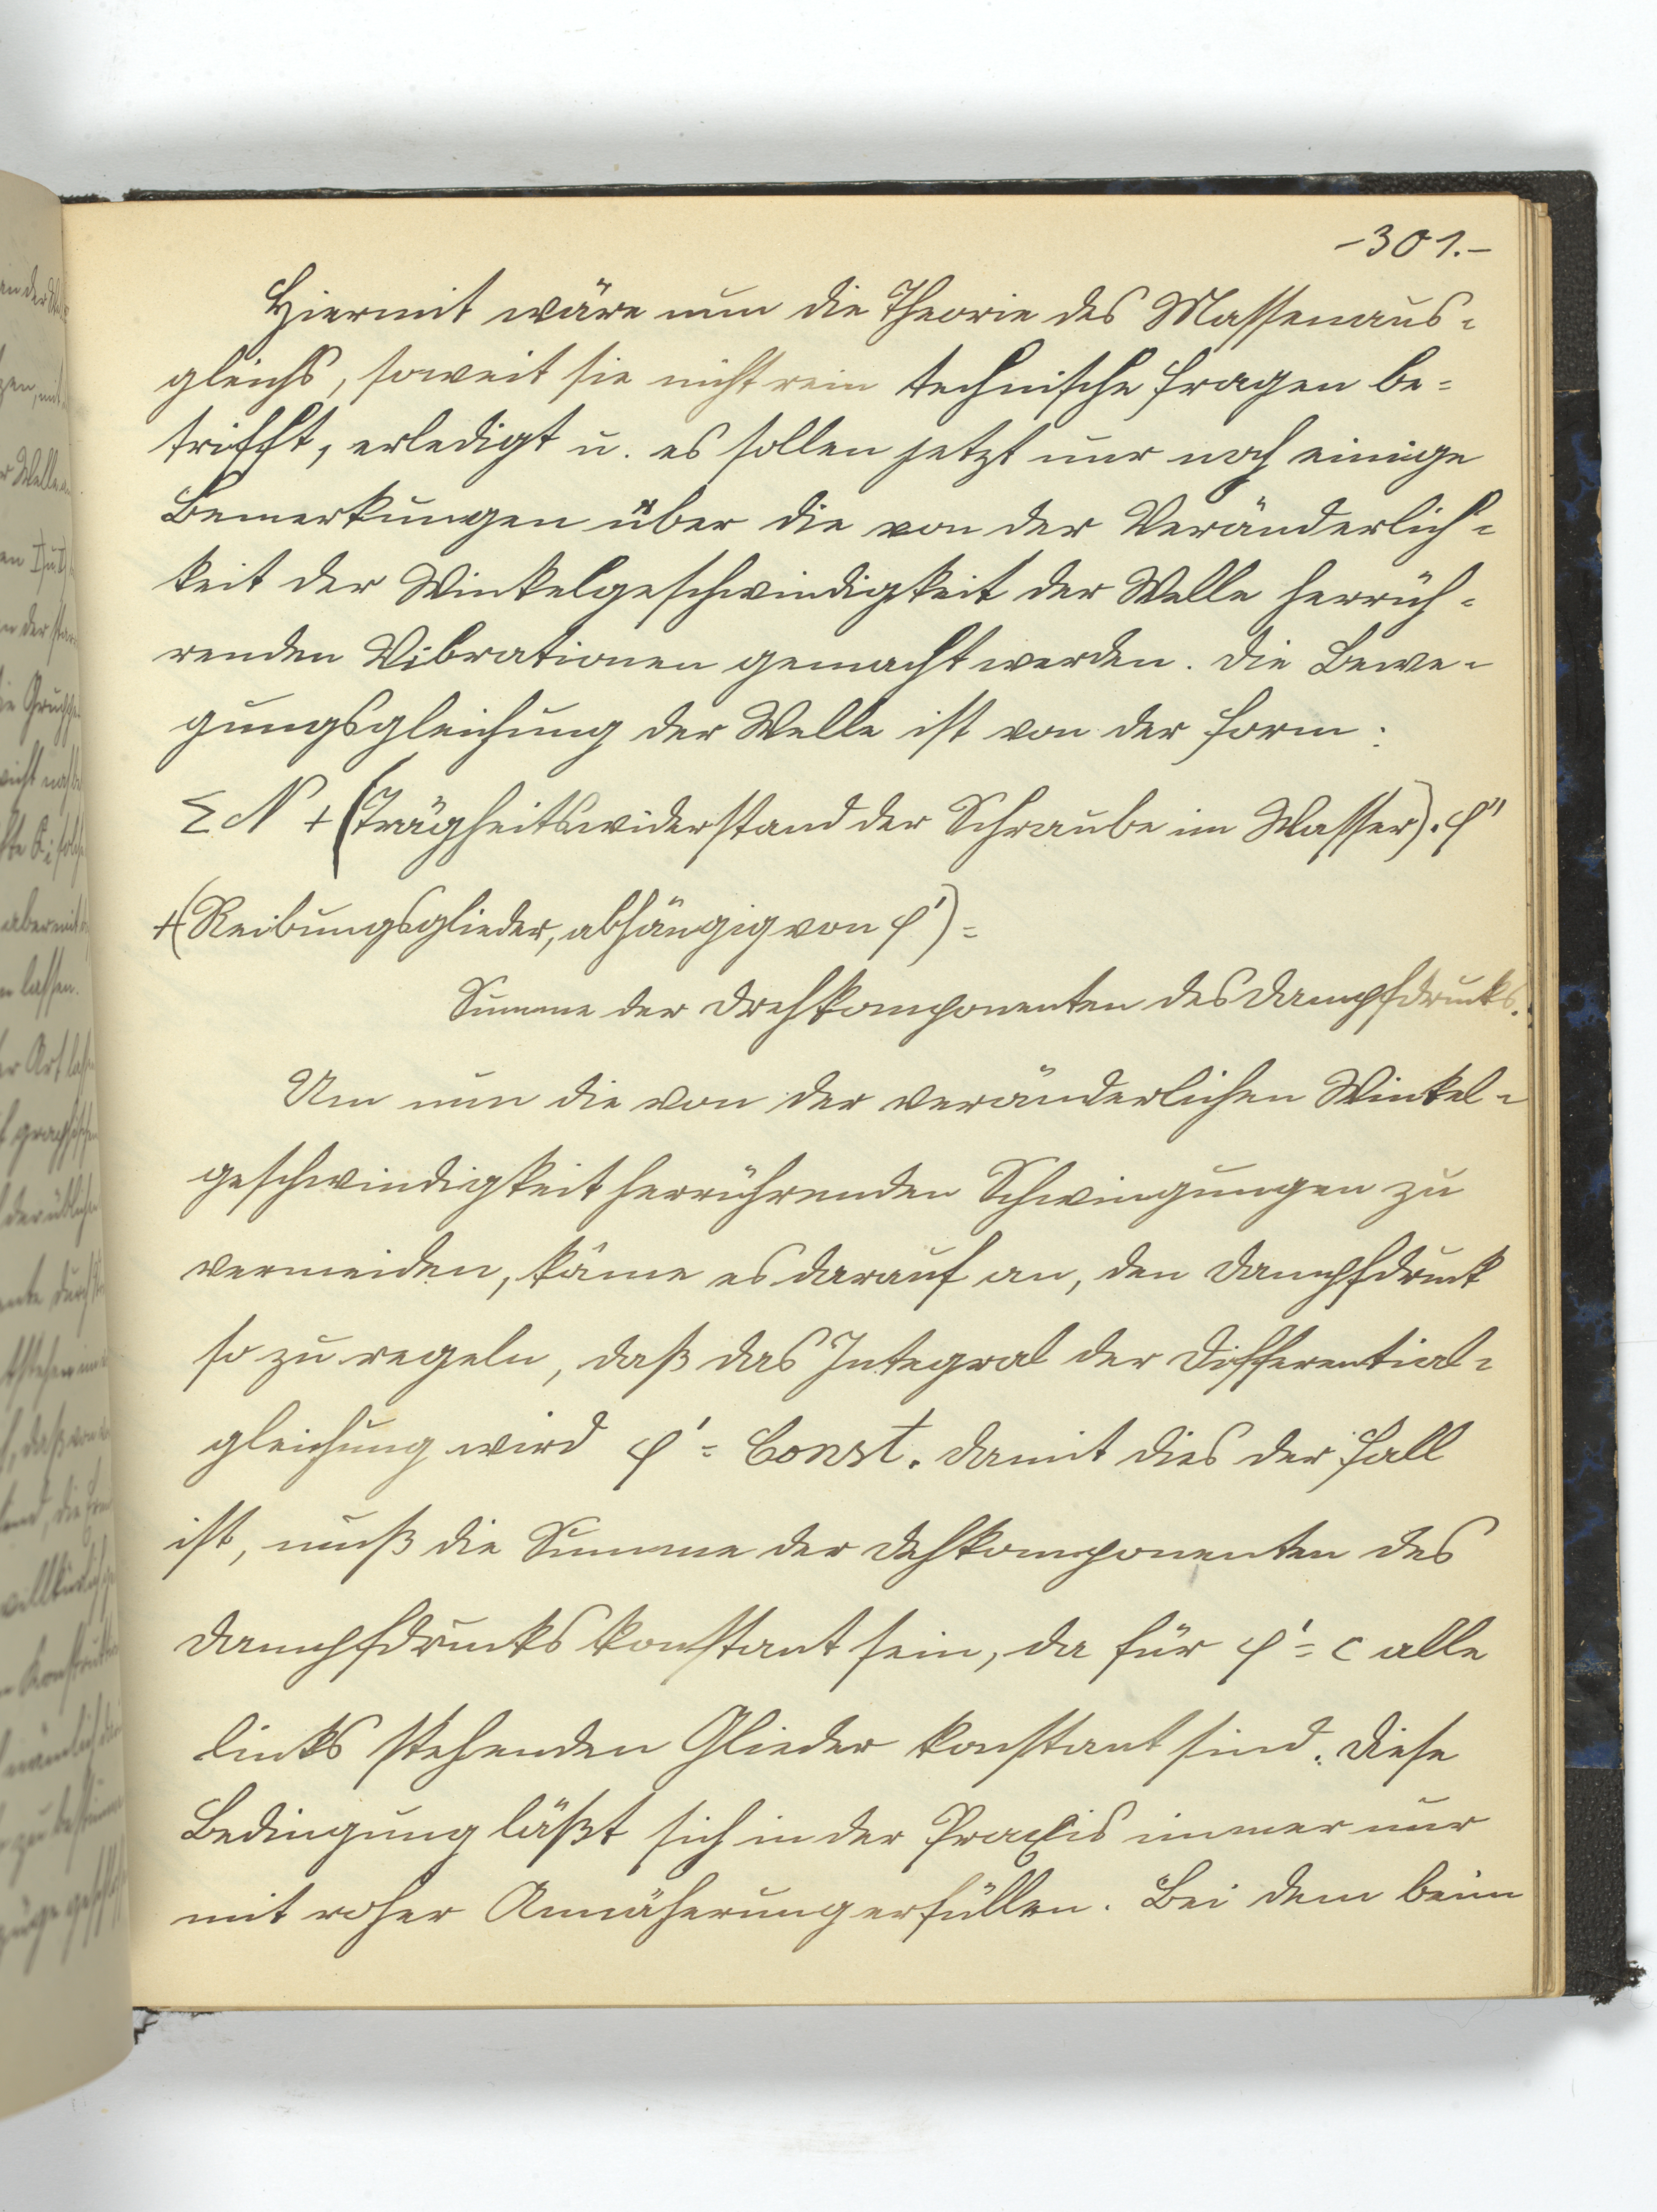 -301.-
Hiermit wäre nun die Theorie des Massenaus=
gleichs, soweit sie nicht rein technische Fragen be=
trifft, erledigt u. es sollen jetzt nur noch einige
Bemerkungen über die von der Veränderlich=
keit der Winkelgeschwindigkeit der Welle herrüh=
renden Vibrationen gemacht werden. Die Bewe=
gungsgleichung der Welle ist von der Form:
Σ N + (Trägheitswiderstand der Schraube im Wasser). φ''
+(Reibungsglieder, abhängig von φ') =
Summe der Drehkomponenten des Dampfdrucks.
Um nun die von der veränderlichen Winkel=
geschwindigkeit herrührenden Schwingungen zu
vermeiden, käme es darauf an, den Dampfdruck
so zu regeln, daß das Integral der Differential=
gleichung wird φ' = Const. Damit dies der Fall
ist, muß die Summe der Dehkomponenten des
Dampfdrucks konstant sein, da für φ' = c alle
links stehenden Glieder konstant sind. Diese
Bedingung läßt sich in der Praxis immer nur
mit roher Annäherung erfüllen. Bei dem beim